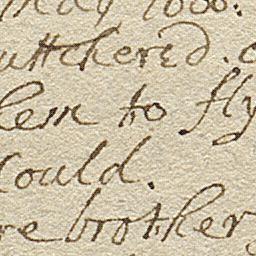 uttchered.
lem to fly
Could.
re brother